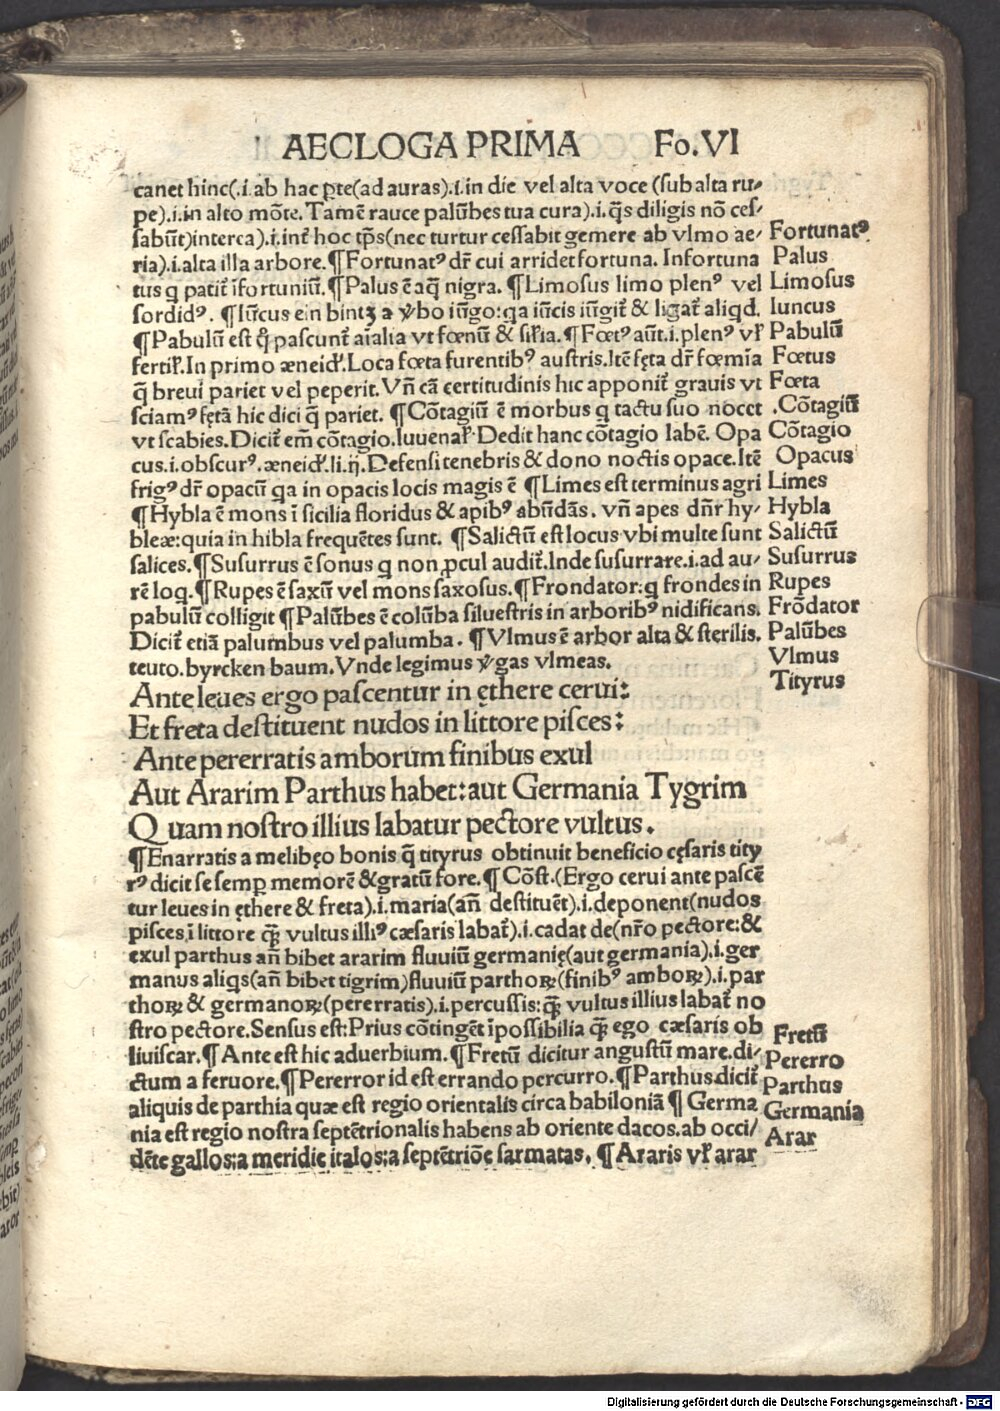 AECLOGA PRIMA Fo.VI
canet hinc(.i. ab hac ꝑte(ad auras).i.in die vel alta voce (sub alta ru⸗
pe).i.in alto mōte. Tamē rauce palūbes tua cura).i.q̄s diligis nō ces⸗
sabūt)interea).i.inť hoc tp̄s(nec turtur cessabit gemere ab vlmo ae⸗
ria).i.alta illa arbore.¶Fortunatꝰ dr̄ cui arridet fortuna. Infortuna
tus q patiť īfortuniū.¶Palus ē aq̄ nigra. ¶Limosus limo plenꝰ vel
sordidꝰ. ¶Iūcus ein bintz a v̾bo iūgo:qa iūcis iūgiť & ligať aliqd.
¶Pabulū est q̄ pascunť aīalia vt fœnū & sił̾ia. ¶Fœtꝰ aūt.i.plenꝰ vł
fertił.In primo æneid̾.Loca fœta furentibꝰ austris.Itē fęta dr̄ fœmīa
q̄ breui pariet vel peperit.Vn̄ cā certitudinis hic apponiť grauis vt
sciamꝰ fętā hic dici q̄ pariet. ¶Cōtagiū ē morbus q tactu suo nocet
vt scabies.Diciť em̄ cōtagio.Iuuenał Dedit hanc cōtagio labē. Opa
cus.i.obscurꝰ.æneid̾.li.ij.Defensi tenebris & dono noctis opace.Itē
frigꝰ dr̄ opacū qa in opacis locis magis ē ¶Limes est terminus agri
¶Hybla ē mons ī sicilia floridus & apibꝰ abūdās. vn̄ apes dn̄r hy⸗
bleæ:quia in hibla frequētes sunt. ¶Salictū est locus vbi multe sunt
salices.¶Susurrus ē sonus q non ꝓcul audiť.Inde susurrare.i.ad au⸗
rē loq.¶Rupes ē saxū vel mons saxosus.¶Frondator:q frondes in
pabulū colligit ¶Palūbes ē colūba siluestris in arboribꝰ nidificans.
Diciť etiā palumbus vel palumba. ¶Vlmus ē arbor alta & sterilis.
teuto.byrcken baum.Vnde legimus v̾gas vlmeas.
Fortunatꝰ
Palus
Limosus
Iuncus
Pabulū
Fœtus
Fœta
.Cōtagiū
Cōtagio
Opacus
Limes
Hybla
Salictū
Susurrus
Rupes
Frōdator
Palūbes
Vlmus
Tityrus
Ante leues ergo pascentur in ęthere cerui:
Et freta destituent nudos in littore pisces:
Ante pererratis amborum finibus exul
Aut Ararim Parthus habet:aut Germania Tygrim
Quam nostro illius labatur pectore vultus.
¶Enarratis a melibęo bonis q̄ tityrus obtinuit beneficio cęsaris tity
rꝰ dicit se semꝑ memorē &gratū fore.¶Cōst.(Ergo cerui ante pascē
tur leues in ęthere & freta).i.maria(an̄ destituēt).i.deponent(nudos
pisces,ī littore qꝫ̄ vultus illiꝰ cæsaris labať).i.cadat de(nr̄o pectore:&
exul parthus an̄ bibet ararim fluuiū germanię(aut germania).i.ger
manus aliqs(an̄ bibet tigrim)fluuiū parthoꝝ(finibꝰ amboꝝ).i.par
thoꝝ & germanoꝝ(pererratis).i.percussis:qꝫ̄ vultus illius labať no
stro pectore.Sensus est:Prius cōtingēt īpossibilia qꝫ̄ ego cæsaris ob
liuiscar.¶Ante est hic aduerbium.¶Fretū dicitur angustū mare.di⸗
ctum a feruore.¶Pererror id est errando percurro.¶Parthus.diciť
aliquis de parthia quæ est regio orientalis circa babiloniā ¶Germa
nia est regio nostra septētrionalis habens ab oriente dacos.ab occi⸗
dēte gallos:a meridie italos:a septētriōe sarmatas. ¶Araris vł arar
Fretū
Pererro
Parthus
Germania
Arar
Digitalisierung gefördert durch die Deutsche Forschungsgemeinschaft - DFG